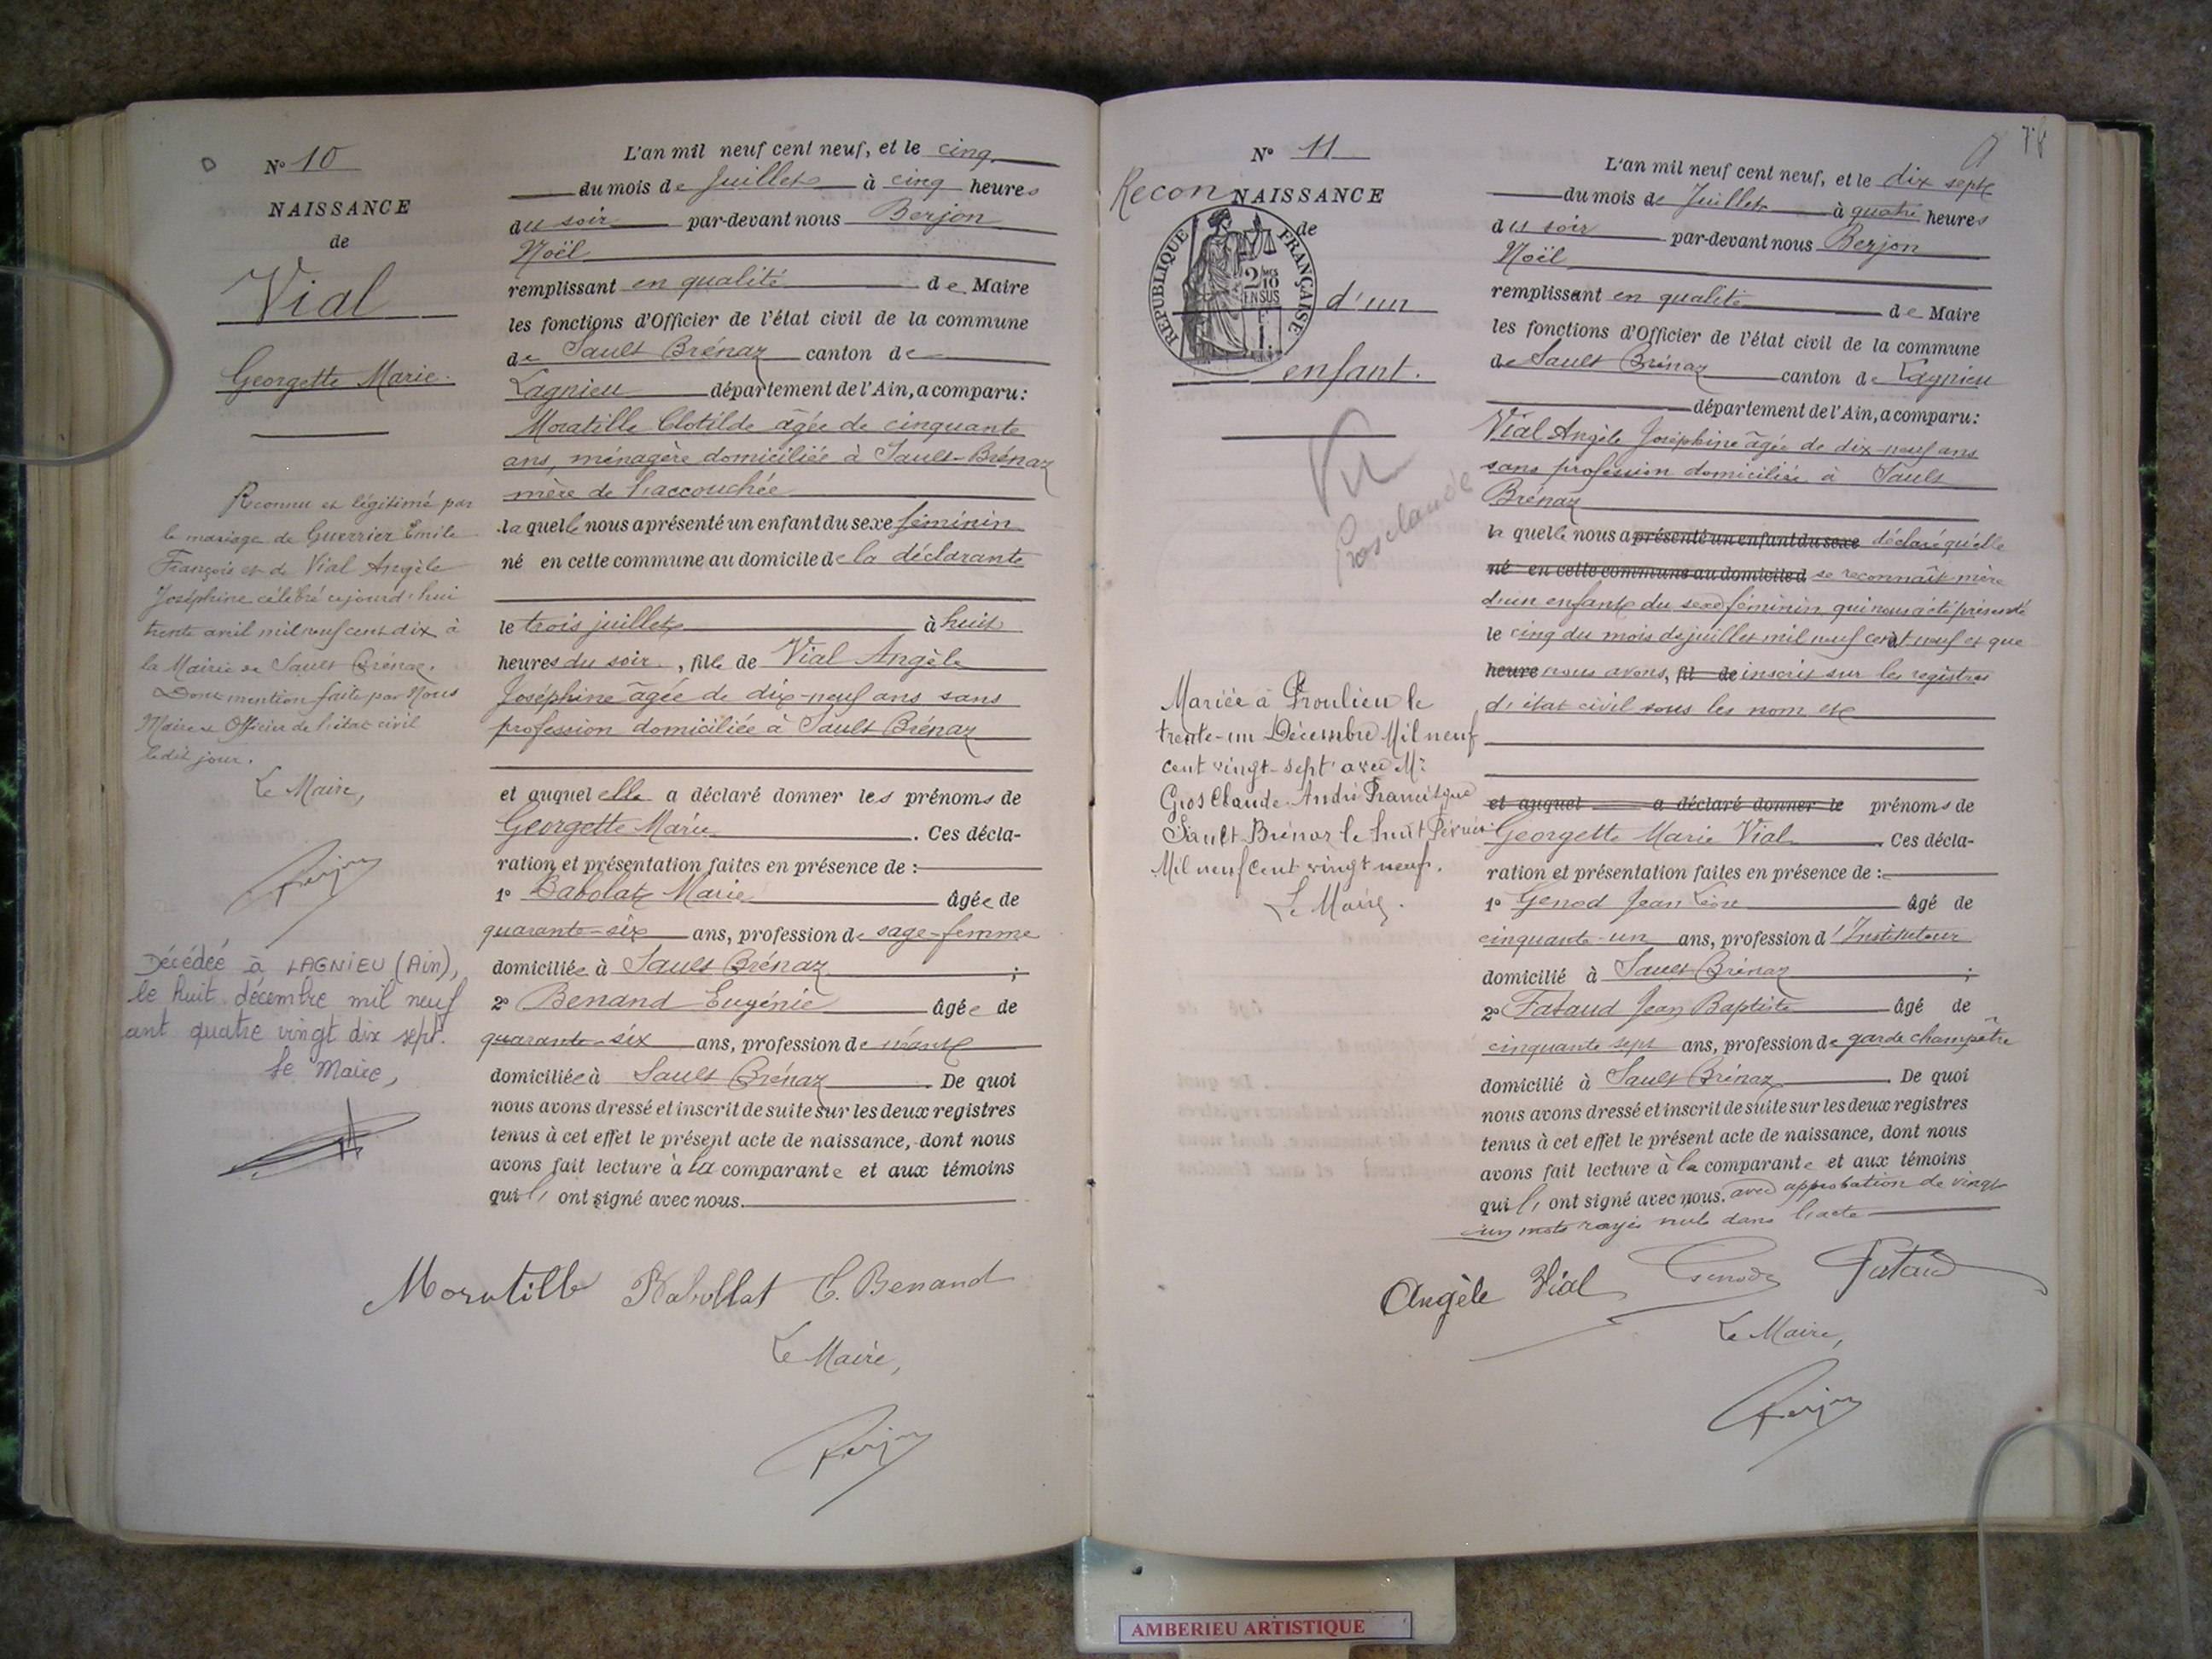 N° 10
NAISSANCE
de
Vial
Georgette Marie.
Reconnu et légitimé par
le mariage de Guerrier Emile
François et de Vial Angèle
Joséphine célébré cejourd'hui
trente avril mil neuf cent dix à
la Mairie de Sault Brénaz.
Dont mention faite par Nous
Maire et Officier de l'état civil
ledit jour.
Le Maire,
Décédée à LAGNIEU (Ain),
le huit décembre mil neuf
cent quatre vingt dix sept.
Le Maire,
L'an mil neuf cent neuf, et le cinq
du mois de Juillet à cinq heures
du soir par-devant nous Berjon
Noël
remplissant en qualité de Maire
les fonctions d'Officier de l'état civil de la commune
de Sault Brénaz canton de
Lagnieu département de l'Ain, a comparu:
Moratille Clotilde âgée de cinquante
ans, ménagère domiciliée à Sault-Brénaz
mère de l'accouchée
laquelle nous a présenté un enfant du sexe féminin
né en cette commune au domicile de la déclarante
le trois juillet à huit
heures du soir, fille de Vial Angèle
Joséphine âgée de dix-neuf ans sans
profession domiciliée à Sault Brénaz
et auquel elle a déclaré donner les prénoms de
Georgette Marie. Ces décla-
ration et présentation faites en présence de :
1° Babolat Marie âgée de
quarante-six ans, profession de sage-femme
domiciliée à Sault Brénaz ;
2° Benand Eugénie âgée de
quarante-six ans, profession de
domiciliée à Sault Brénaz. De quoi
nous avons dressé et inscrit de suite sur les deux registres
tenus à cet effet le présent acte de naissance, dont nous
avons fait lecture à la comparante et aux témoins
qui l, ont signé avec nous.
Moratille Babollat E. Benand
Le Maire,
78
N° 11
Recon NAISSANCE
de
REPUBLIQUE FRANÇAISE
2/10 EN SUS
d'un
enfant.
Vu
Grosclaude
Mariée à Proulieu le
trente-un Décembre Mil neuf
cent vingt-sept avec Mr
Gros Claude André Francisque
Sault-Brénaz le huit Février
Mil neuf cent vingt neuf.
Le Maire.
L'an mil neuf cent neuf, et le dix sept
du mois de Juillet à quatre heures
du soir par-devant nous Berjon
Noël
remplissant en qualité de Maire
les fonctions d'Officier de l'état civil de la commune
de Sault Brénaz canton de Lagnieu
département de l'Ain, a comparu:
Vial Angèle Joséphine âgée de dix-neuf ans
sans profession domiciliée à Sault
Brénaz
laquelle nous a présenté un enfant du sexe déclaré qu'elle
né en cette commune au domicile d se reconnaît mère
d'un enfant du sexe féminin qui nous a été présenté
le cinq du mois de juillet mil neuf cent neuf et que
heure nous avons, fil de inscrit sur les registres
d'état civil sous les nom et
et auquel a déclaré donner le prénoms de
Georgette Marie Vial. Ces décla-
ration et présentation faites en présence de :
1° Genod Jean Léon âgé de
cinquante-un ans, profession d'Instituteur
domicilié à Sault Brénaz ;
2° Fataud Jean Baptiste âgé de
cinquante sept ans, profession de garde champêtre
domicilié à Sault Brénaz. De quoi
nous avons dressé et inscrit de suite sur les deux registres
tenus à cet effet le présent acte de naissance, dont nous
avons fait lecture à la comparante et aux témoins
qui l, ont signé avec nous. avec approbation de vingt
un mots rayés nuls dans l'acte
Angèle Vial Genod Fataud
Le Maire,
AMBERIEU ARTISTIQUE